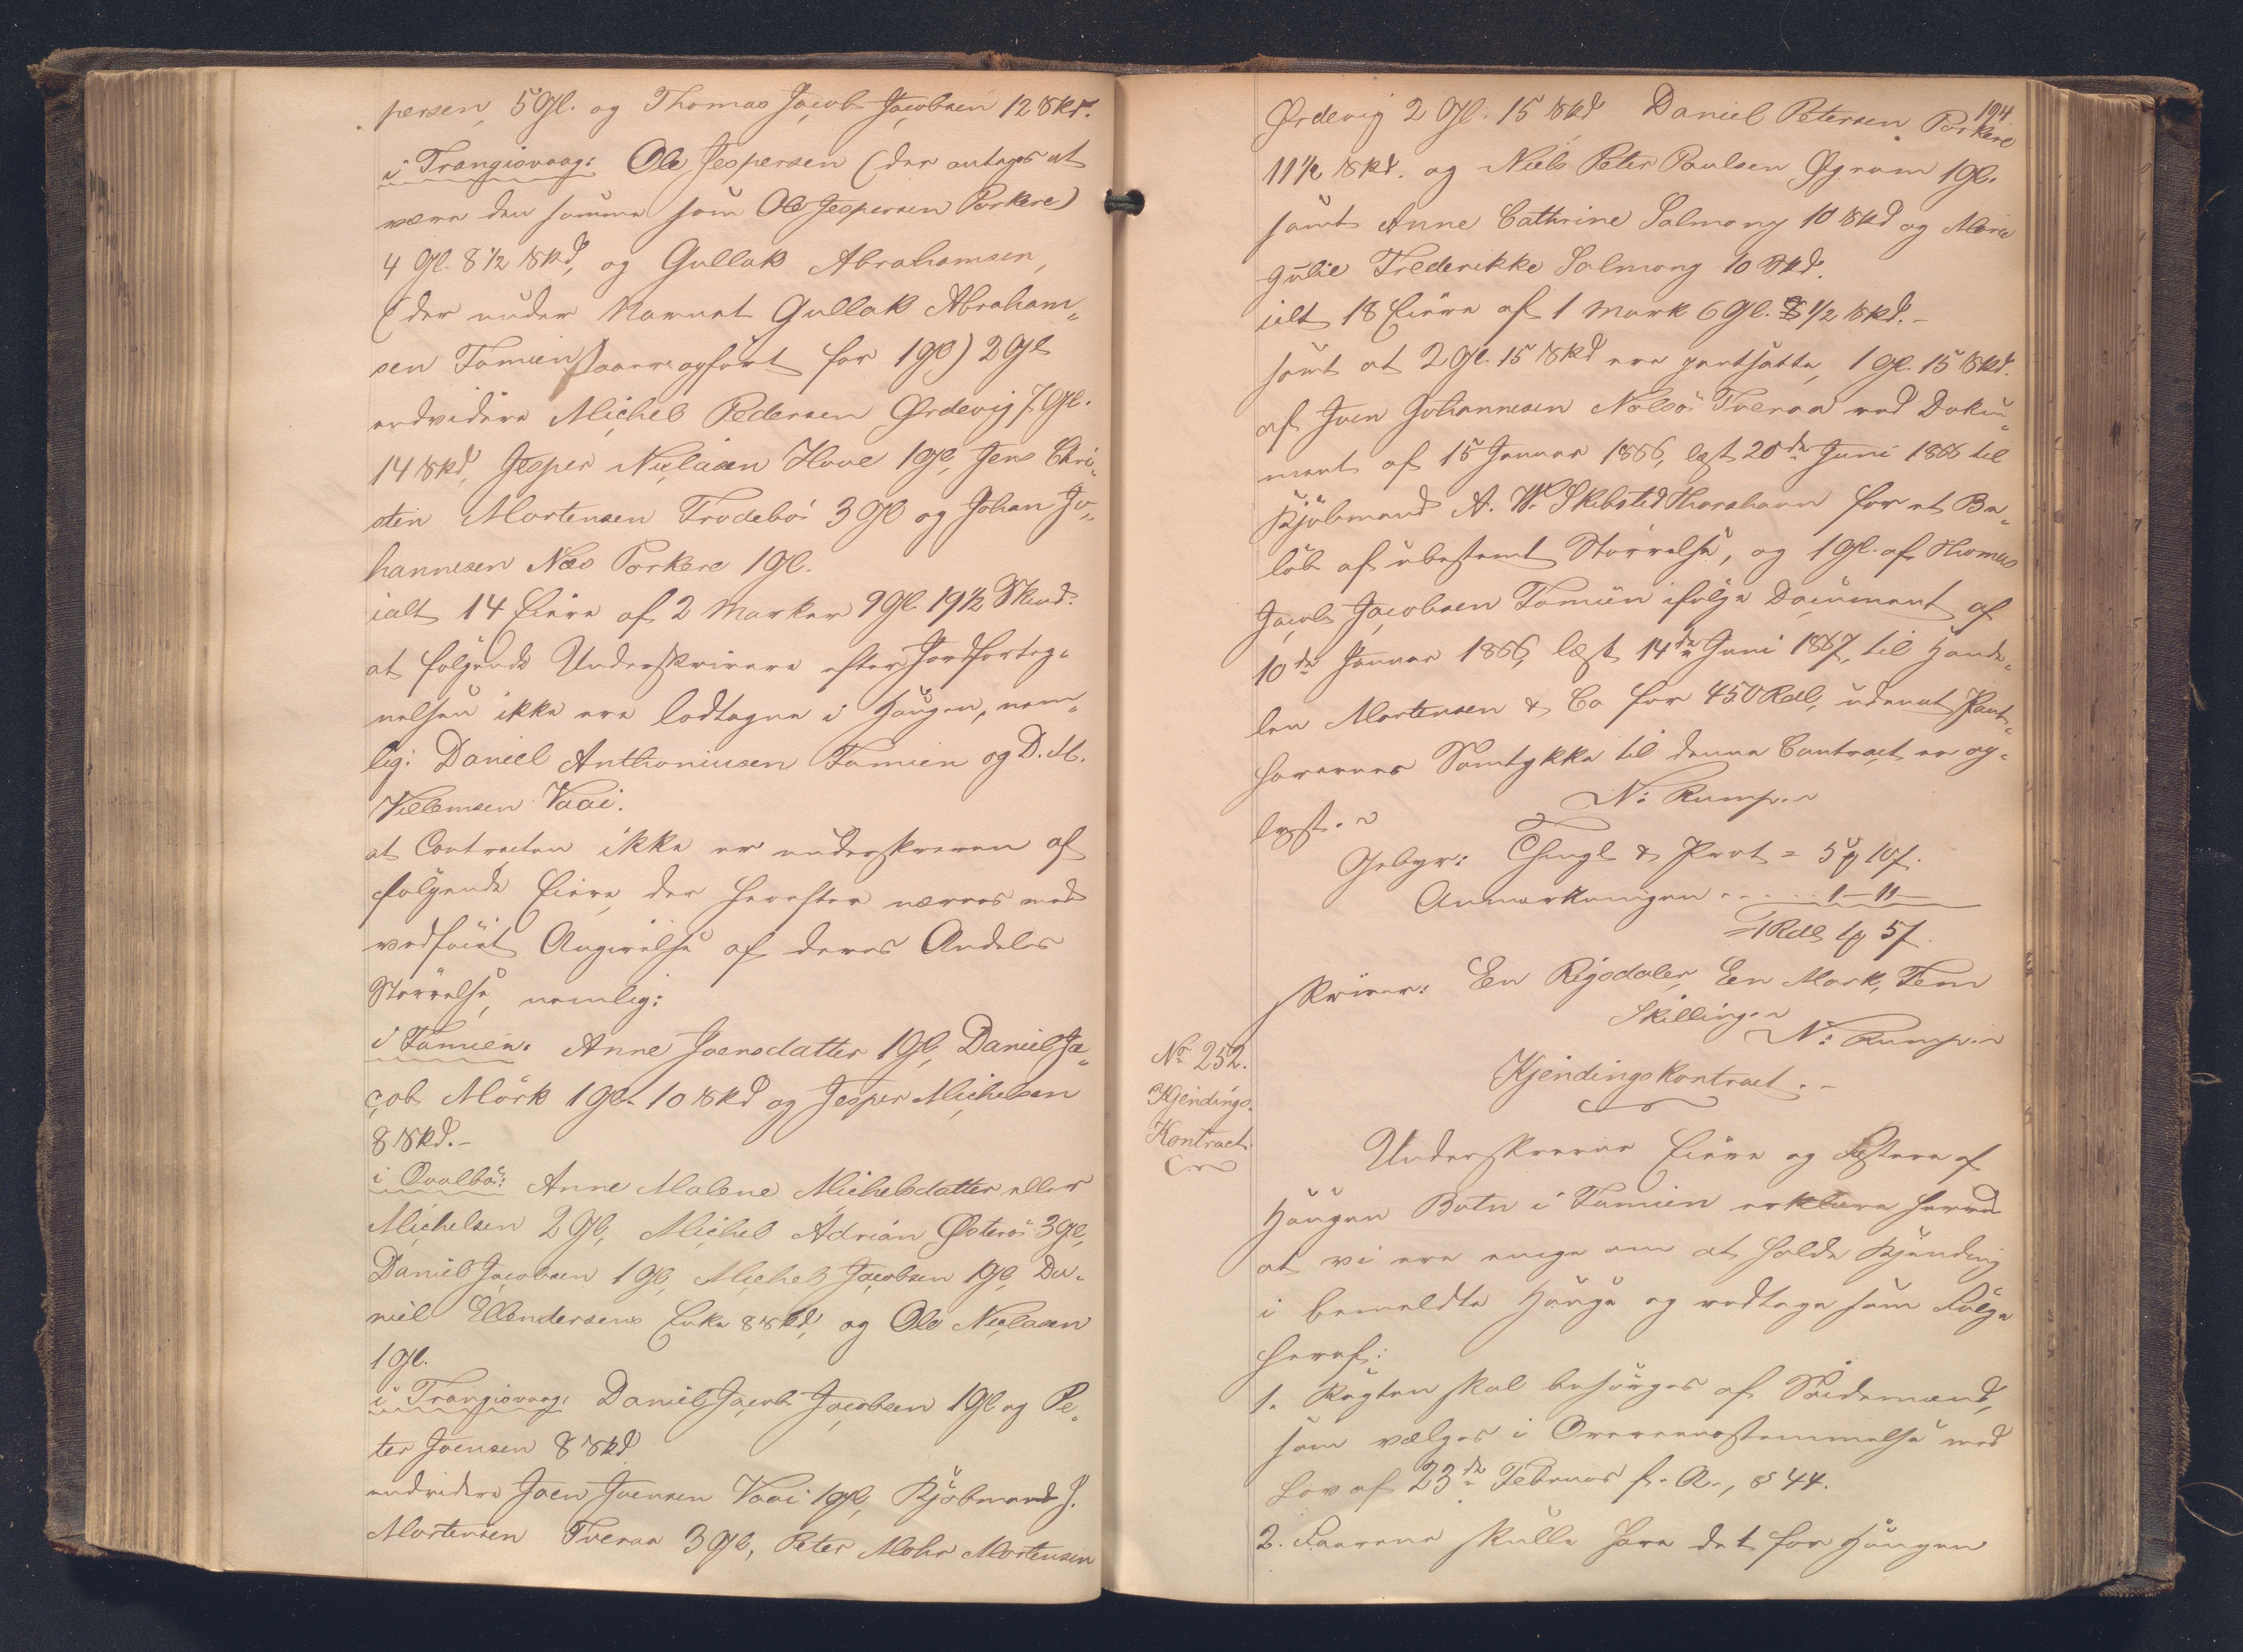 persen, 5 Gl. og Thomas Jacob Jacobsen 12 Skd.
i Trangisvaag: Ole Jespersen (der antages at
være den samme som Ole Jespersen Porkere)
4 Gl. 8 1/2 Skd, og Gullak Abrahamsen,
(der under Navnet Gullak Abraham„
sen Famien staar opført for 1 Gl) 2 Gl
endvidere Michel Pedersen Ørdevig 7 Gl.
14 Skd, Jesper Niclasen Hove 1 Gl, Jens Chri„
sten Mortensen Frodebö 3 Gl og Johan Jo„
hannesen Næs Porkere 1 Gl.
ialt 14 Eiere af 2 Marker 9 Gl. 19 1/2 Skind.
at følgende Underskrivere efter Jordforteg„
nelsen ikke ere lodtagne i Haugen, nem„
lig: Daniel Anthoniusen Famien og D. M.
Villemsen Vaai.
at Contracten ikke er underskreven af
følgende Eiere, der herefter nævnes med
vedføiet Angivelse af deres Andeles
Størrelse, nemlig:
i Famien: Anne Joensdatter 1 Gl, Daniel Ja„
cob Mörk 1 Gl. 10 Skd og Jesper Michelsen
8 Skd.-
i Qvalbö: Anne Malene Michelsdatter eller
Michelsen 2 Gl, Michel Adrian Østerö 3 Gl,
Daniel Jacobsen 1 Gl, Michel Jacobsen 1 Gl, Da„
niel Ellendersens Enke 8 Skd, og Ole Niclasen
1 Gl.
i Trangisvaag: Daniel Jacob Jacobsen 1 Gl og Pe„
ter Joensen 8 Skd.
endvidere Joen Joensen Vaai 1 Gl, Kjøbmand J.
Mortensen Tveraa 3 Gl, Peter Mohr Mortensen
194.
Ørdevig 2 Gl. 15 Skd Daniel Petersen Porkere
11 1/2 Skd. og Niels Peter Poulsen Øgrum 1 Gl.
samt Anne Cathrine Salmony 10 Skd og Marie
Julie Frederikke Salmony 10 Skd.
ialt 18 Eiere af 1 Mark 6 Gl. 8 1/2 Skd.-
samt at 2 Gl. 15 Skd ere pantsatte, 1 Gl. 15 Skd.
af Joen Johannesen Nolsö Tveraa ved Doku„
ment af 15 Januar 1866, læst 20de Juni 1866 til
Kjøbmand A. W. Skibsted Thorshavn for et Be„
løb af ubestemt Størrelse, og 1 Gl. af Thomas
Jacob Jacobsen Famien ifølge Document af
10de Januar 1866, læst 14de Juni 1867, til Hande„
len Mortensen & Co for 450 Rdl, uden at Pant„
haverens Samtykke til denne Contract er op„
lyst.
N: Rump.
Gebyr: Thingl & Prot = 5 ₰ 10 ſ.
Anmærkningen . . . . . 1 - 11 -
= 1 Rdl 1 ₰ 5 ſ.
skriver: En Rigsdaler, Een Mark, Fem
Skilling.
N: Rump.
Nr 252.
Kjendings-
Kontract.
Kjendingskontract.-
Underskrevne Eiere og Festere af
Haugen Botn i Famien erklære herved
at vi ere enige om at holde Kjending
i bemeldte Hauge og vedtage som Følge
heraf:
1. Røgten skal besørges af Seidemænd,
som vælges i Overensstemmelse med
Lov af 23de Februar f. A., § 44.
2. Faarene skulle have det for Haugen